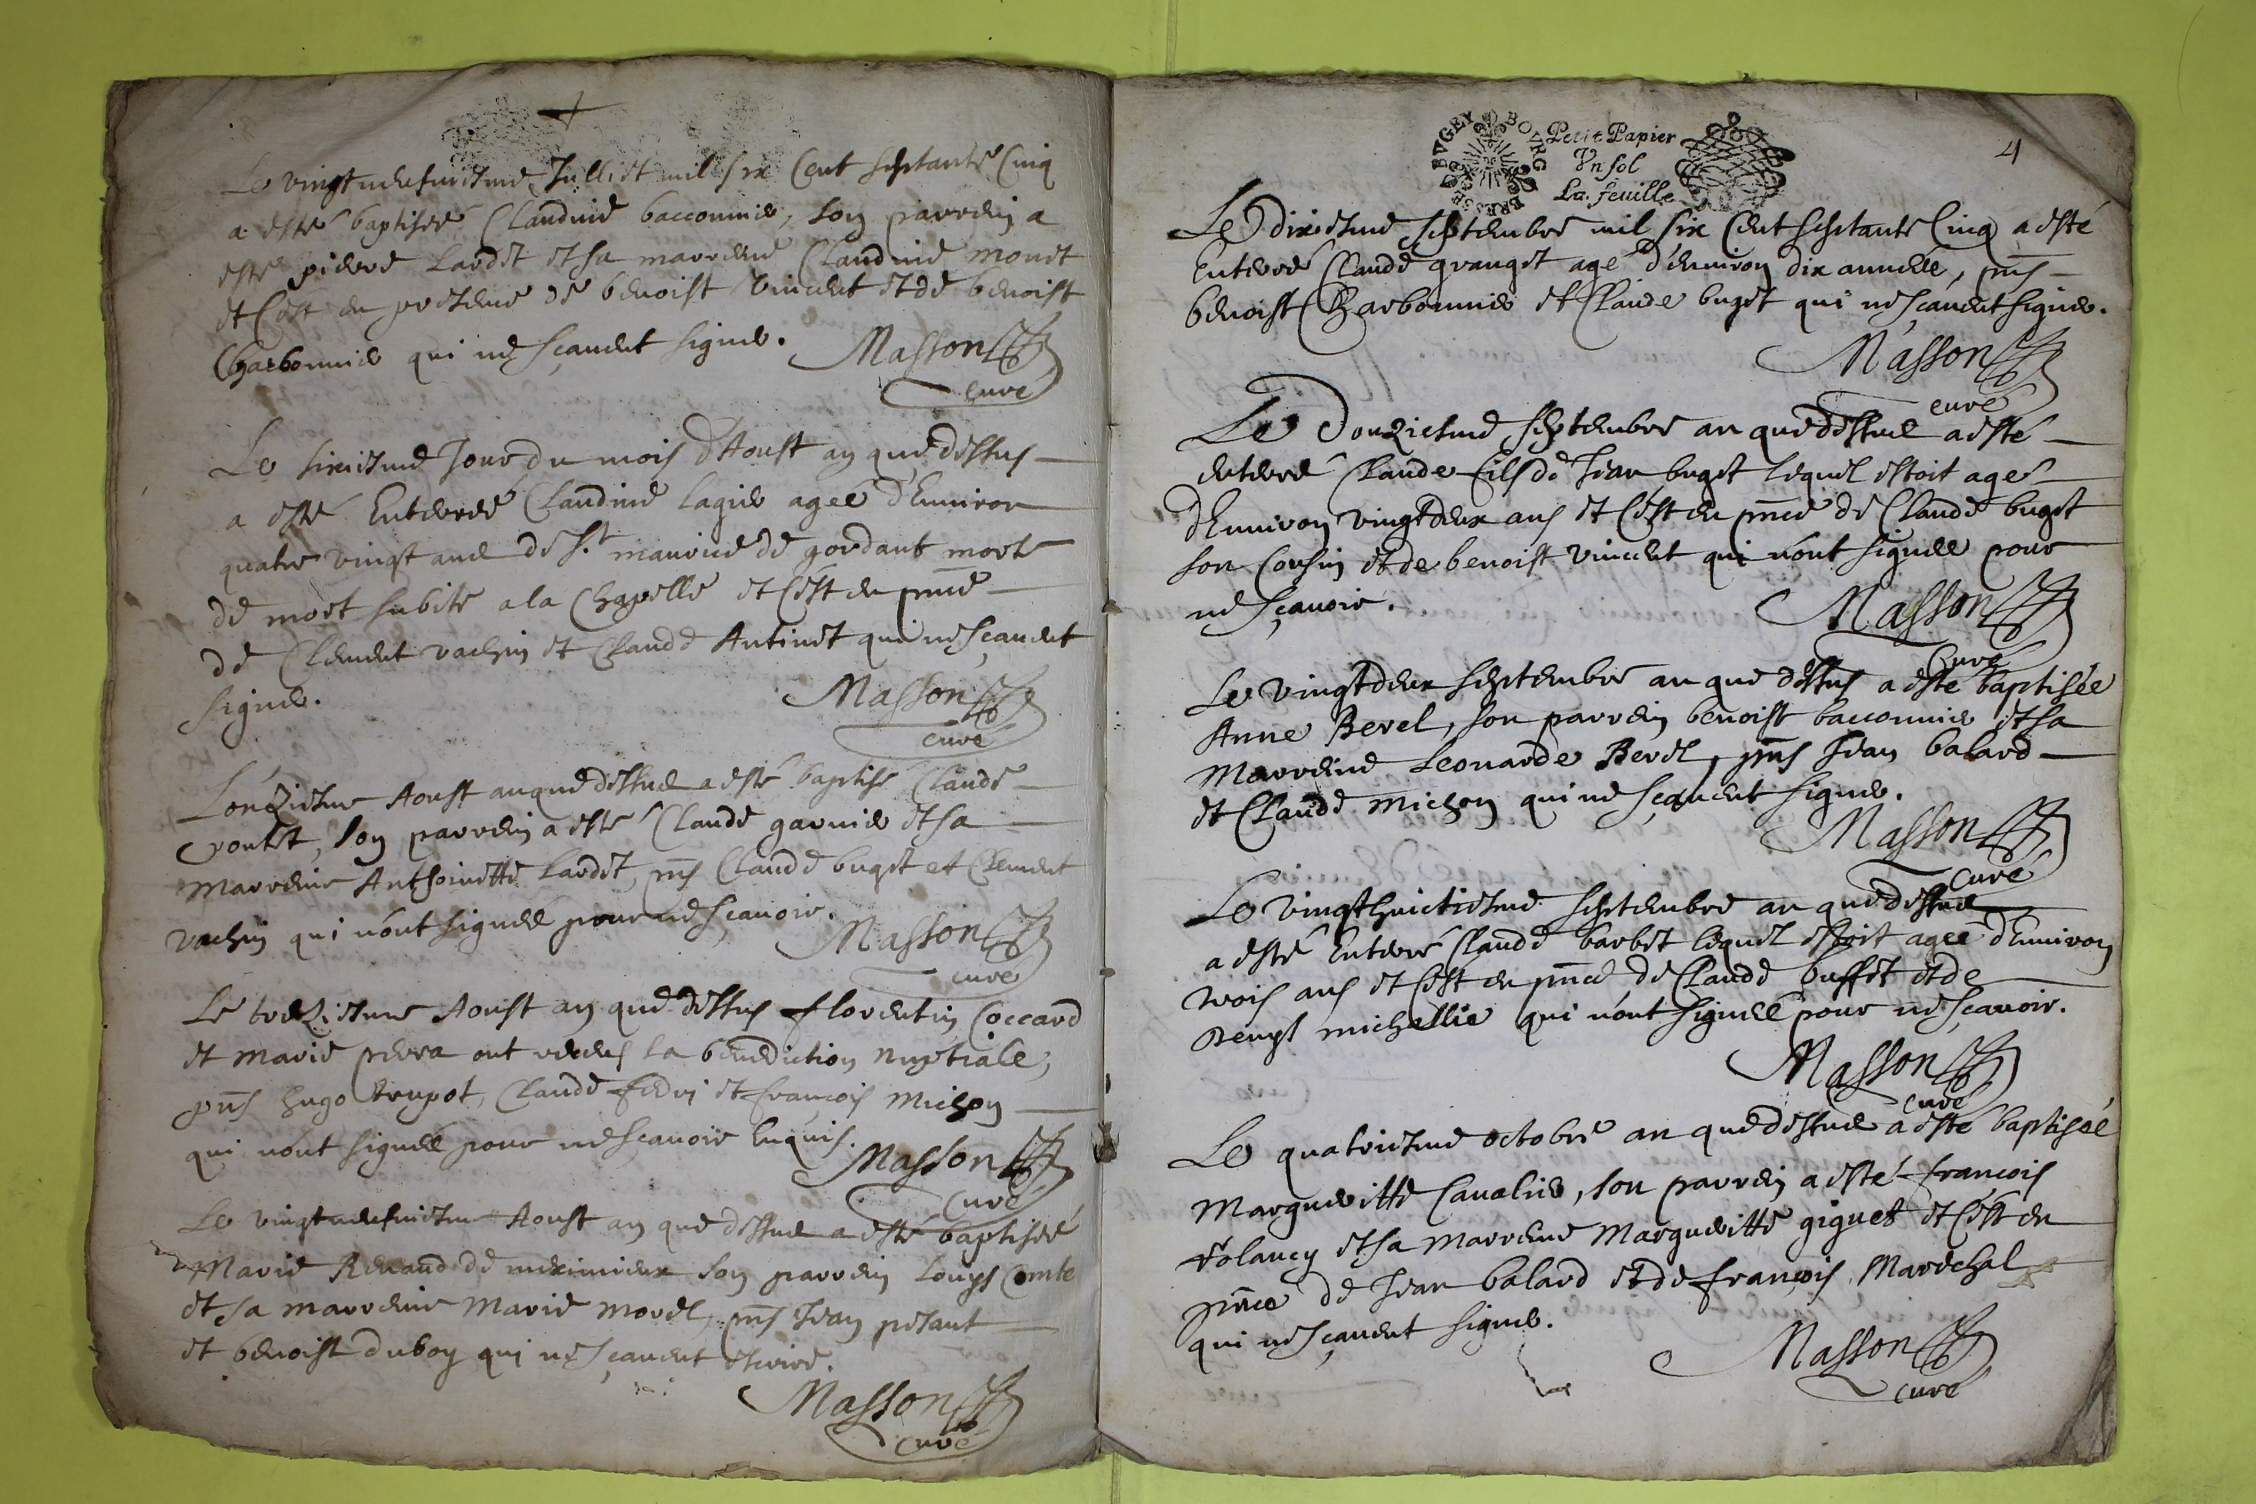 Le vingtneufuiesme Julliet mil six Cent septante Cinq
a esté baptisée Claudine bacconnier, son parrein a
esté pierre Lardet et sa marreine Claudine monet
et C'est en presence de benoist vincent et de benoist
Charbonnier qui ne sçauent signer.
Masson
curé
Le sixiesme Jour du mois d'Aoust an que dessus
a esté Enterreé Claudine lagier ageé d'Enuiron
quatre vingt ans de St. maurice de gordant morte
de mort subite a la Chapelle et C'est en pnce
de Clement vachin et Claude Antinet qui ne sçauent
signer.
Masson
curé
L'onziesme Aoust an que dessus a esté baptisé Claude
ponset, son parrein a esté Claude garnier et sa
marreine Anthoinette Lardet, pns Claude buget et Clement
vachin qui n'ont signés pour ne sçauoir.
Masson
curé
Le treziesme Aoust an que dessus florentin Coccard
et marie perra ont receus la benediction nuptiale,
pns hugo trupot, Claude fedri et françois michon
qui n'ont signés pour ne sçauoir Enquis.
Masson
Curé
Le vingtneufuiesme Aoust an que dessus a esté baptiseé
Marie Renaud de meximieux son parrein Louys Comte
et sa marreine Marie morel, pns Jean pesant
et benoist duboy qui ne sçauent escrire.
Masson
curé
4
BRESSE BVGEY BOVRG
Petit Papier
Vn sol
La feuille
Le dixiesme septembre mil six Cent septante Cinq a esté
Enterré Claude granget agé d'Enuiron dix années, pns
benoist Charbonnier et Claude buget qui ne sçauent signer.
Masson
curé
Le Douziesme septembre an que dessus a esté
enterré Claude fils de Jean buget lequel estoit agé
d'Enuiron vingtdeux ans et C'est en pnce de Claude buget
son Cousin et de benoist vincent qui n'ont signés pour
ne sçauoir.
Masson
Curé
Le vingtdeux septembre an que dessus a esté baptisée
Anne Berel, son parrein benoist bacconnier et sa
Marreine Leonarde Berel, pns Jean balard
et Claude michon qui ne sçauent signer.
Masson
Curé
Le vingthuictiesme septembre an que dessus
a esté Enterré Claude barbet lequel estoit agé d'Enuiron
trois ans et C'est en pnce de Claude buffet et de
Denys michellie qui n'ont signés pour ne sçauoir.
Masson
curé
Le quatriesme octobre an que dessus a esté baptisée
Margueritte Caualier, son parrein a esté françois
Volancy et sa marreine Margueritte giguet et C'est en
pnce de Jean balard et de françois Marechal
qui ne sçauent signer.
Masson
curé